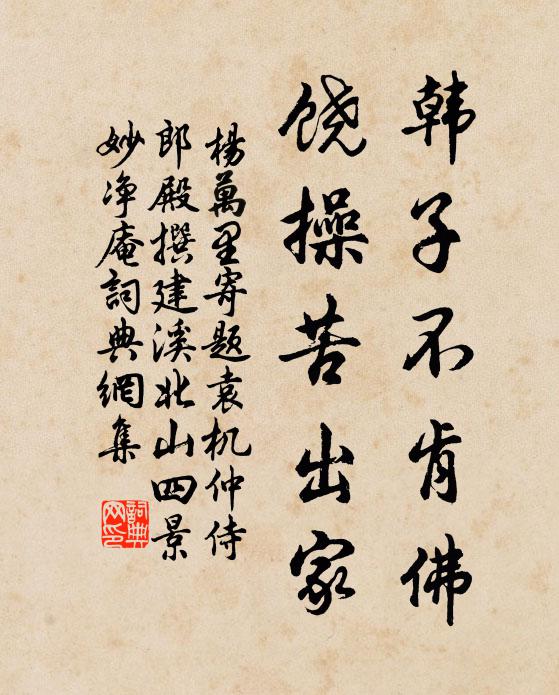 韩子不肯佛
饶操苦出家
楊萬里寄题袁机仲侍
郎殿撰建溪北山四景
妙净庵詞典網集
詞典
网印